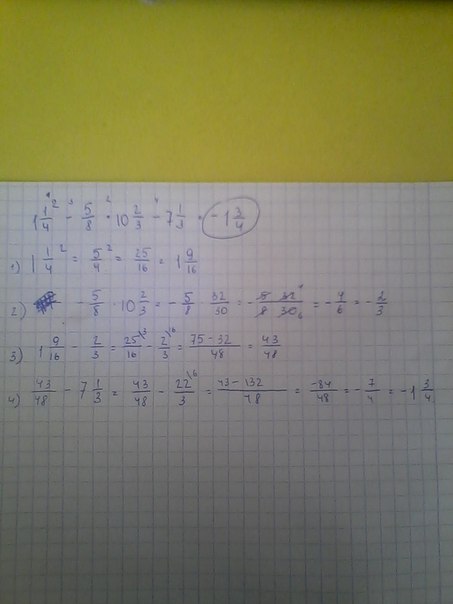 1 1/4² - 5/8 · 10 2/3 - 7 1/3 = -1 3/4
1) 1 1/4² = 5/4² = 25/16 = 1 9/16
2) - 5/8 · 10 2/3 = - 5/8 · 32/30 = - 5·32/8·30 = - 4/6 = - 2/3
3) 1 9/16 - 2/3 = 25/16 - 2/3 = 75-32/48 = 43/48
4) 43/48 - 7 1/3 = 43/48 - 22/3 = 43-132/48 = -84/48 = - 7/4 = -1 3/4